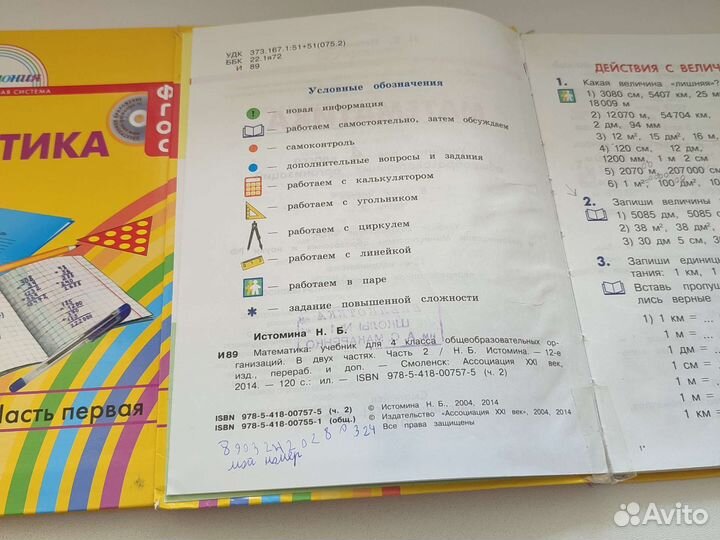 УДК 373.167.1:51+51(075.2)
ББК 22.1я72
И 89
Условные обозначения
— новая информация
— работаем самостоятельно, затем обсуждаем
— самоконтроль
— дополнительные вопросы и задания
— работаем с калькулятором
— работаем с угольником
— работаем с циркулем
— работаем с линейкой
— работаем в паре
— задание повышенной сложности
Истомина Н. Б.
И89 Математика: учебник для 4 класса общеобразовательных ор-
ганизаций. В двух частях. Часть 2 / Н. Б. Истомина. — 12-е
изд., перераб. и доп. — Смоленск: Ассоциация XXI век,
2014. — 120 с.: ил. — ISBN 978-5-418-00757-5 (ч. 2)
ISBN 978-5-418-00757-5 (ч. 2)
ISBN 978-5-418-00755-1 (общ.)
© Истомина Н. Б., 2004, 2014
© Издательство «Ассоциация XXI век», 2004, 2014
Все права защищены
мой номер
ДЕЙСТВИЯ С ВЕЛИЧ
1. Какая величина «лишняя»?
1) 3080 см, 5407 км, 25 м
18 009 м
2) 12 070 м, 54 704 км,
2 дм, 94 мм
3) 12 м², 15 дм², 16 м,
4) 120 см, 12 дм,
1200 мм, 1 м 2 см
5) 2070 м, 207 000 см
6) 1 м², 100 дм², 10
2. Запиши величины
1) 5085 дм, 5085
2) 38 м², 38 дм²,
3) 30 дм 5 см, 3
3. Запиши единицы
тания: 1 км, 1
Вставь пропущ
лись верные
1) 1 км = ...
1 м = ...
1 дм = ...
1 см = ...
1 км = ...
1 м =
1 м
1*
ТИКА
ФГОС
Часть первая
Avito